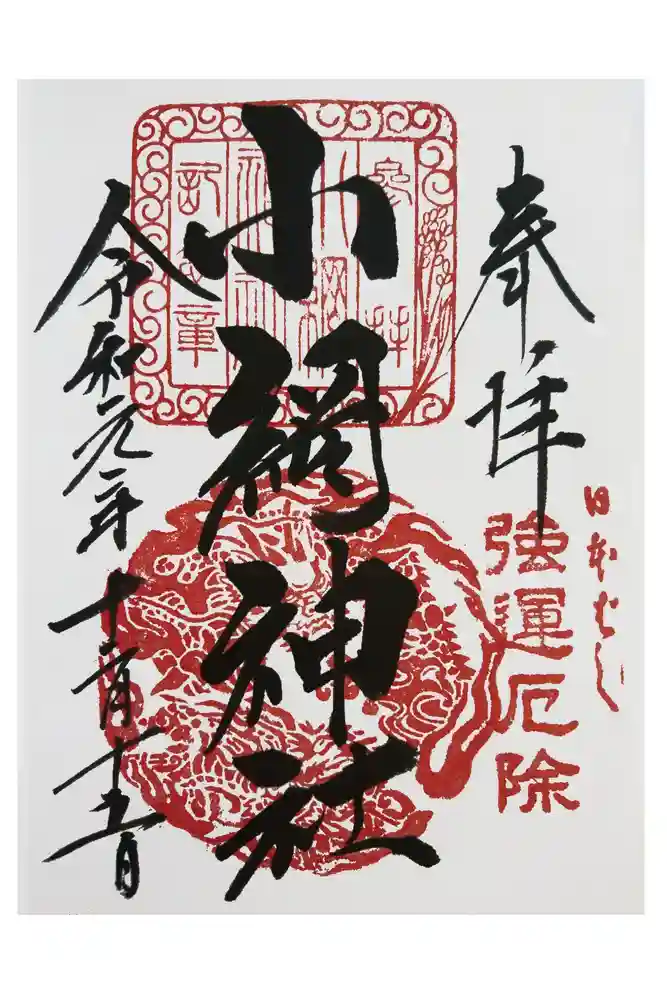 奉拝
日本ばし
強運厄除
小網神社
参拝
小網
神社
記念章
令和元年十一月十五日